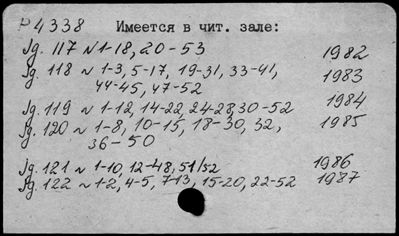 P 4338 Имеется в чит. зале:
Jg. 117 N 1-18, 20-53 1982
Jg. 118 ~ 1-3, 5-17, 19-31, 33-41, 1983
44-45, 47-52
Jg. 119 ~ 1-12, 14-22, 24-28, 30-52 1984
Jg. 120 ~ 1-8, 10-15, 18-30, 32, 1985
36-50
Jg. 121 ~ 1-10, 12-48, 51/52 1986
Jg. 122 ~ 1-2, 4-5, 7-13, 15-20, 22-52 1987